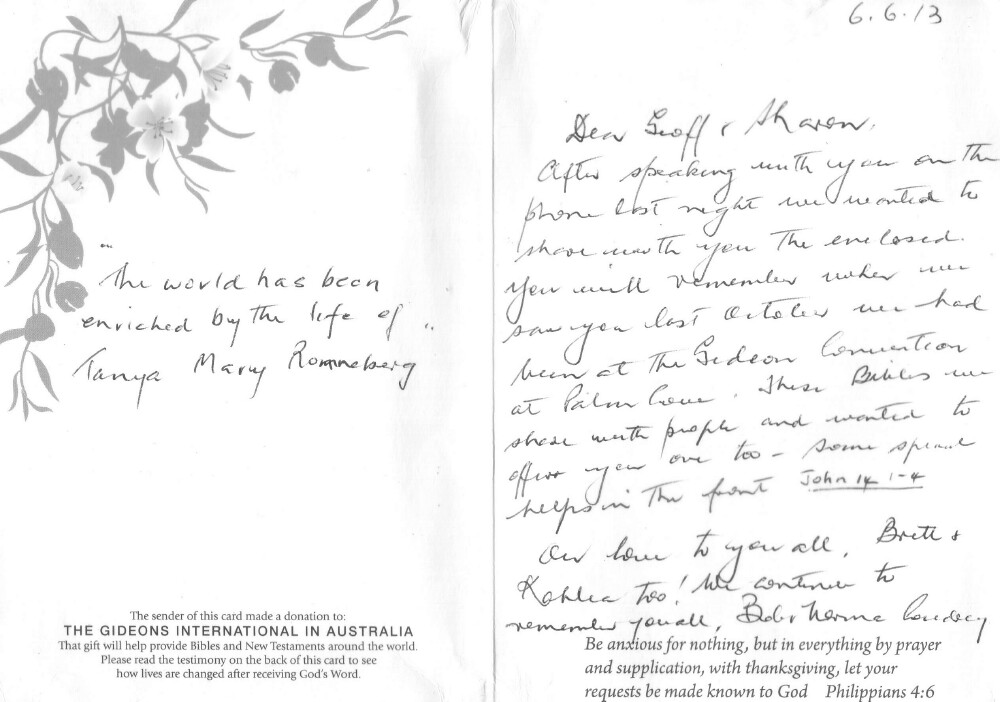 "
The world has been
enriched by the life of "
Tanya Mary Ronneberg
The sender of this card made a donation to:
THE GIDEONS INTERNATIONAL IN AUSTRALIA
That gift will help provide Bibles and New Testaments around the world.
Please read the testimony on the back of this card to see
how lives are changed after receiving God's Word.
6.6.13
Dear Geoff & Sharon,
After speaking with you on the
phone last night we wanted to
share with you the enclosed.
You will remember when we
saw you last October we had
been at the Gideon Convention
at Palm Cove. These Bibles we
share with people and wanted to
offer you one too - some special
helps in the front John 14 1-4
Our love to you all, Brett &
too! We continue to
remember you all, Bob & Norma
Be anxious for nothing, but in everything by prayer
and supplication, with thanksgiving, let your
requests be made known to God Philippians 4:6